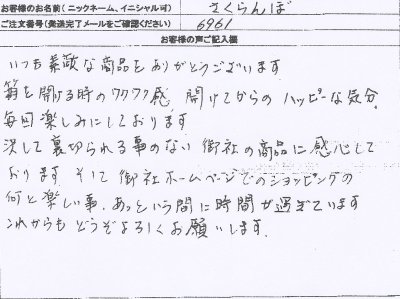 お客様のお名前(ニックネーム、イニシャル可) さくらんぼ
ご注文番号(発送完了メールをご確認ください) 6961
お客様の声ご記入欄
いつも素敵な商品をありがとうございます
箱を開ける時のワクワク感 開けてからの ハッピーな気分.
毎回楽しみにしております
決して裏切られる事のない御社の商品に感心して
おります そして御社ホームページでのショッピングの
何と楽しい事. あっという間に時間が過ぎています
これからも どうぞよろしくお願いします.